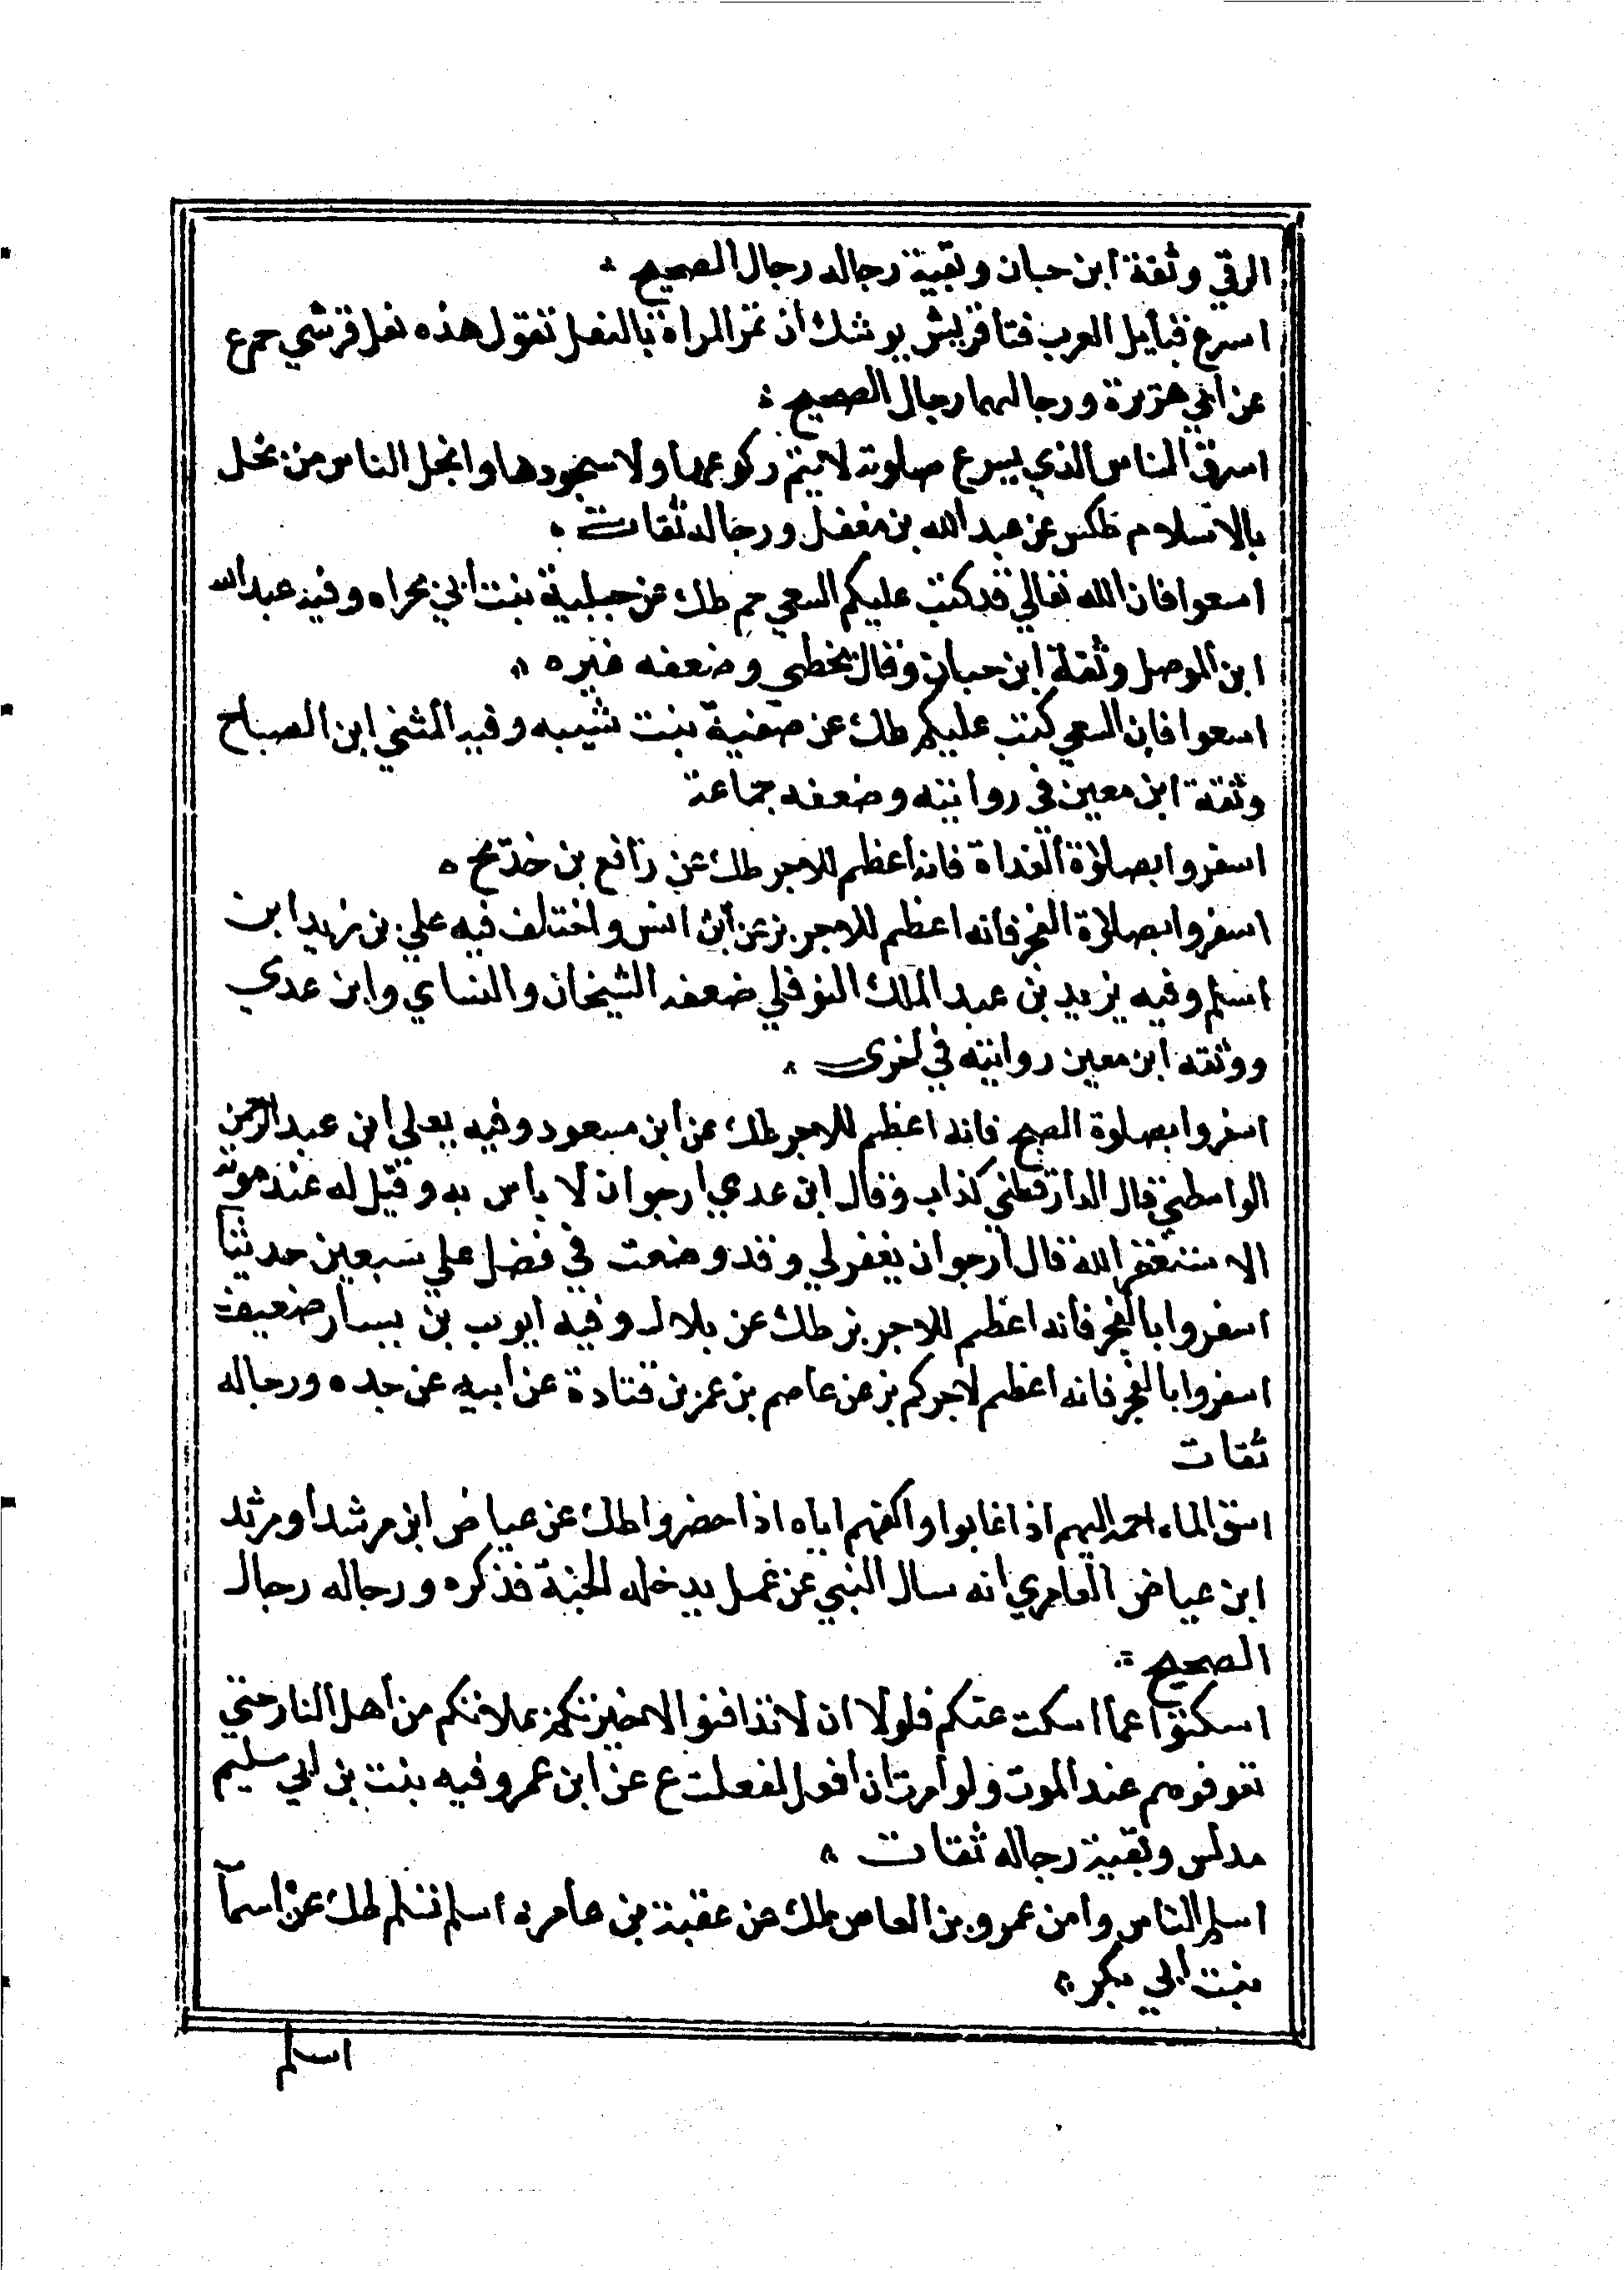 الرقي وثقة ابن حبان وبقية رجاله رجال الصحيح
اسرع قبايل العرب فتا قريش يوشك ان تمر المراة بالنعل تقول هذه نعل قرشي حم ع
عن ابي هريرة ورجالهما رجال الصحيح
اسرق الناس الذي يسرع صلوته لا يتم ركوعها ولا سجودها وابخل الناس من بخل
بالاسلام طكس عن عبد الله بن مغفل ورجاله ثقات
اسعوا فان الله تعالي قد كتب عليكم السعي حم طك عن حبلبية بنت ابي بحراه وفيه عبد الله
ابن الموصل وثقة ابن حبان وقال يخطي وضعفه غيره
اسعوا فان السعي كتب عليكم طك عن صفية بنت شيبه وفيه المثني ابن الصباح
وثقة ابن معين في روايته وضعفه جماعة
اسفروا بصلوة الغداة فانه اعظم للاجر طك عن رافع بن خديج
اسفروا بصلاة الفجر فانه اعظم للاجر بز عن ابن انس واختلف فيه علي بن زيد ابن
اسلم وفيه يزيد بن عبد الملك النوفلي ضعفه الشيخان والنساي وابن عدي
ووثقه ابن معين روايته في اخرى
اسفروا بصلوة الصبح فانه اعظم للاجر طك عن ابن مسعود وفيه يعلي ابن عبد الرحمن
الواسطي قال الدارقطني كذاب وقال ابن عدي ارجوان لا باس به وقيل له عند موته
الا تستغفر الله قال ارجوان يغفر لي وقد وضعت في فضل علي سبعين حديثا
اسفروا بالفجر فانه اعظم للاجر بز طك عن بلال وفيه ايوب بن يسار ضعيف
اسفروا بالفجر فانه اعظم لاجركم بز عن عاصم بن عمر بن قتادة عن ابيه عن جده ورجاله
ثقات
اسق الماء احمه اليهم اذا غابوا واكفهم اياه اذا حضروا طك عن عياض ابن مرشد او مرثد
ابن عياض العامري انه سال النبي عن عمل يدخله الجنة فذكره ورجاله رجال
الصحيح
اسكتوا عما اسكت عنكم فلولا ان لا تدافنوا لاخبرتكم بملائكم من اهل النار حتي
تعوفوهم عند الموت ولو امرت ان افعل لفعلت ع عن ابن عمر وفيه بنت بن ابي سليم
مدلس وبقية رجاله ثقات
اسلم الناس وامن عمرو بن العاص طك عن عقبة بن عامر ه اسلم تسلم طك عن اسمآ
بنت ابي بكر
اسلم